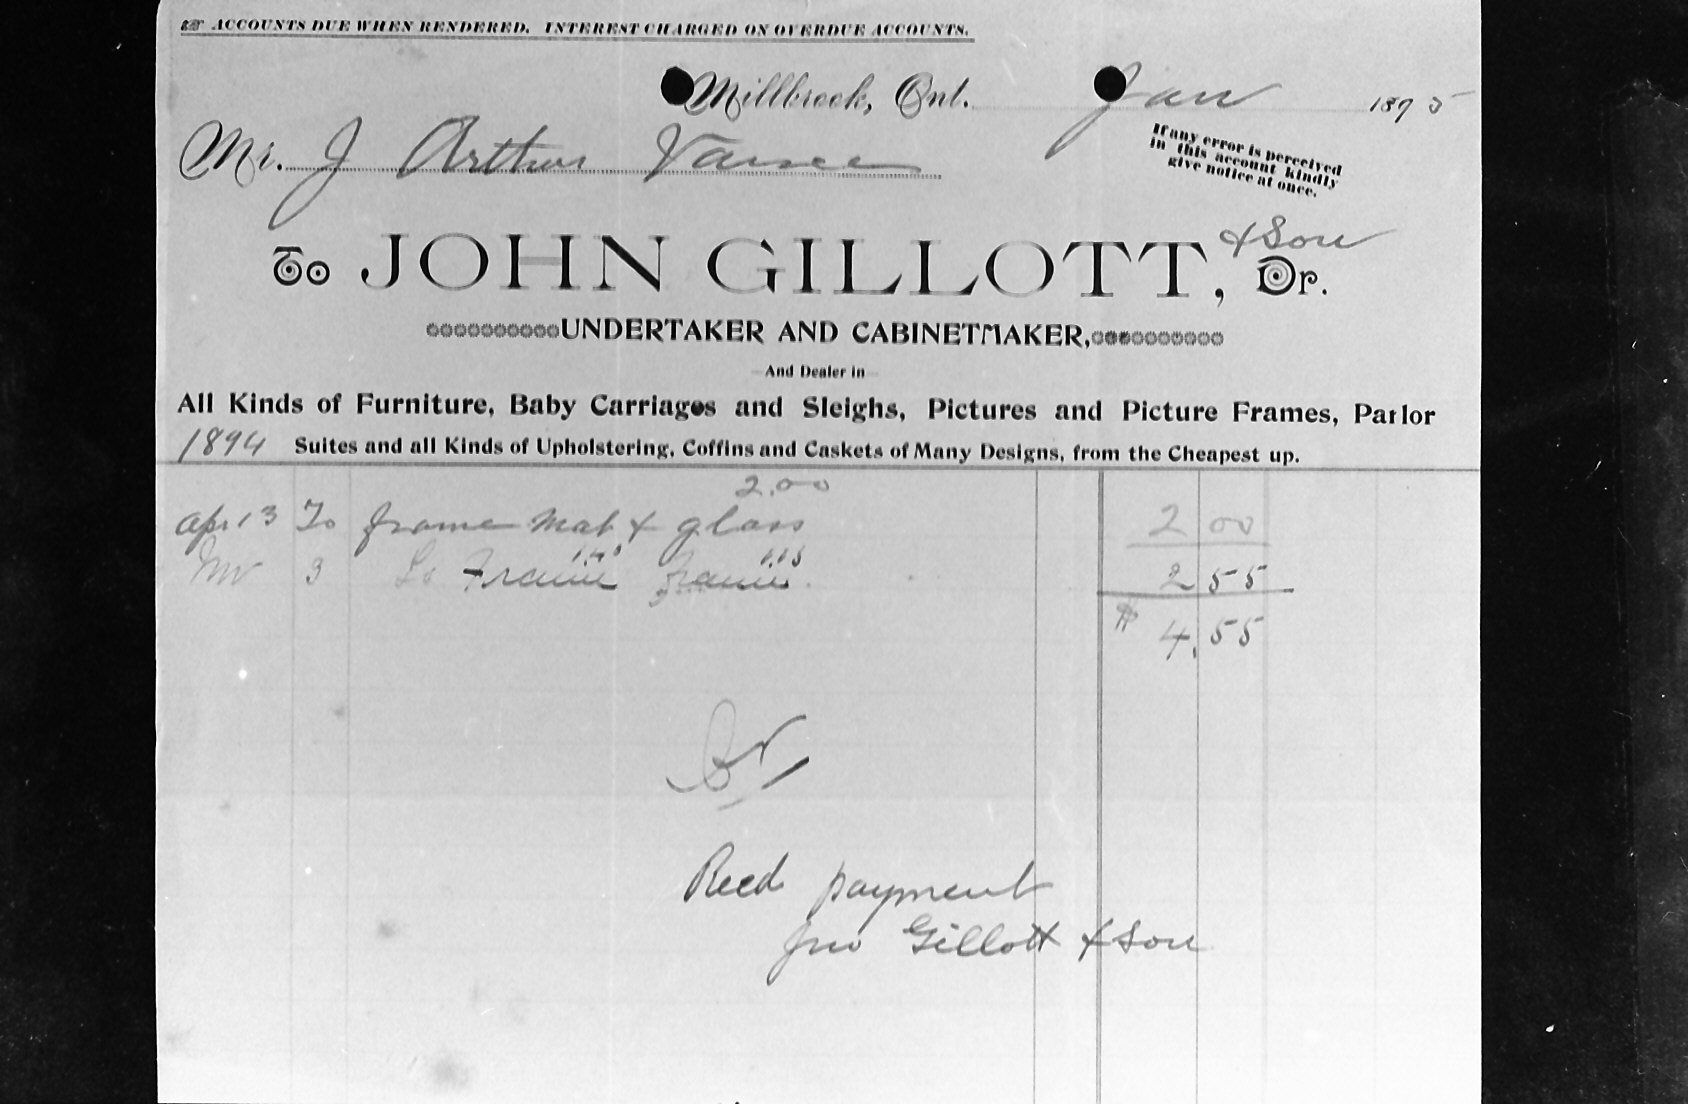 ACCOUNTS DUE WHEN RENDERED. INTEREST CHARGED ON OVERDUE ACCOUNTS.
Millbrook, Ont. Jan 1895
Mr. J Arthur Vance
If any error is perceived
in this account kindly
give notice at once.
& Son
To JOHN GILLOTT, Dr.
UNDERTAKER AND CABINETMAKER,
And Dealer in
All Kinds of Furniture, Baby Carriages and Sleighs, Pictures and Picture Frames, Parlor
1894 Suites and all Kinds of Upholstering, Coffins and Caskets of Many Designs, from the Cheapest up.
2.00
Apr 13 To frame Mat & glass 2 00
3 To Frame frame 2 55
$ 4.55
Recd payment
Jno Gillott & Son